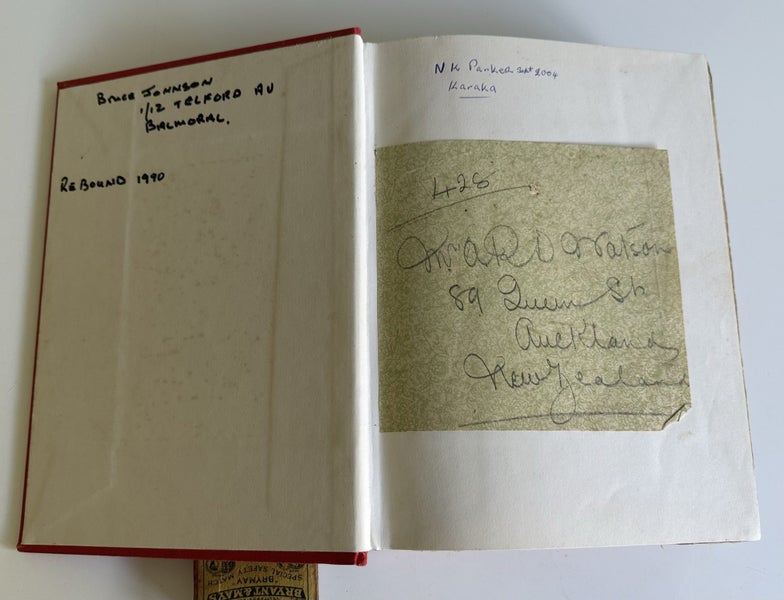 Bruce Johnson
1/12 Telford Av
Balmoral.
Rebound 1990
N K Parker Sept 2004
Karaka
428
Mr A R D Watson
89 Queen St
Auckland
New Zealand
BRYANT & MAY'S
"BRYMAY"
SPECIAL SAFETY MATCH